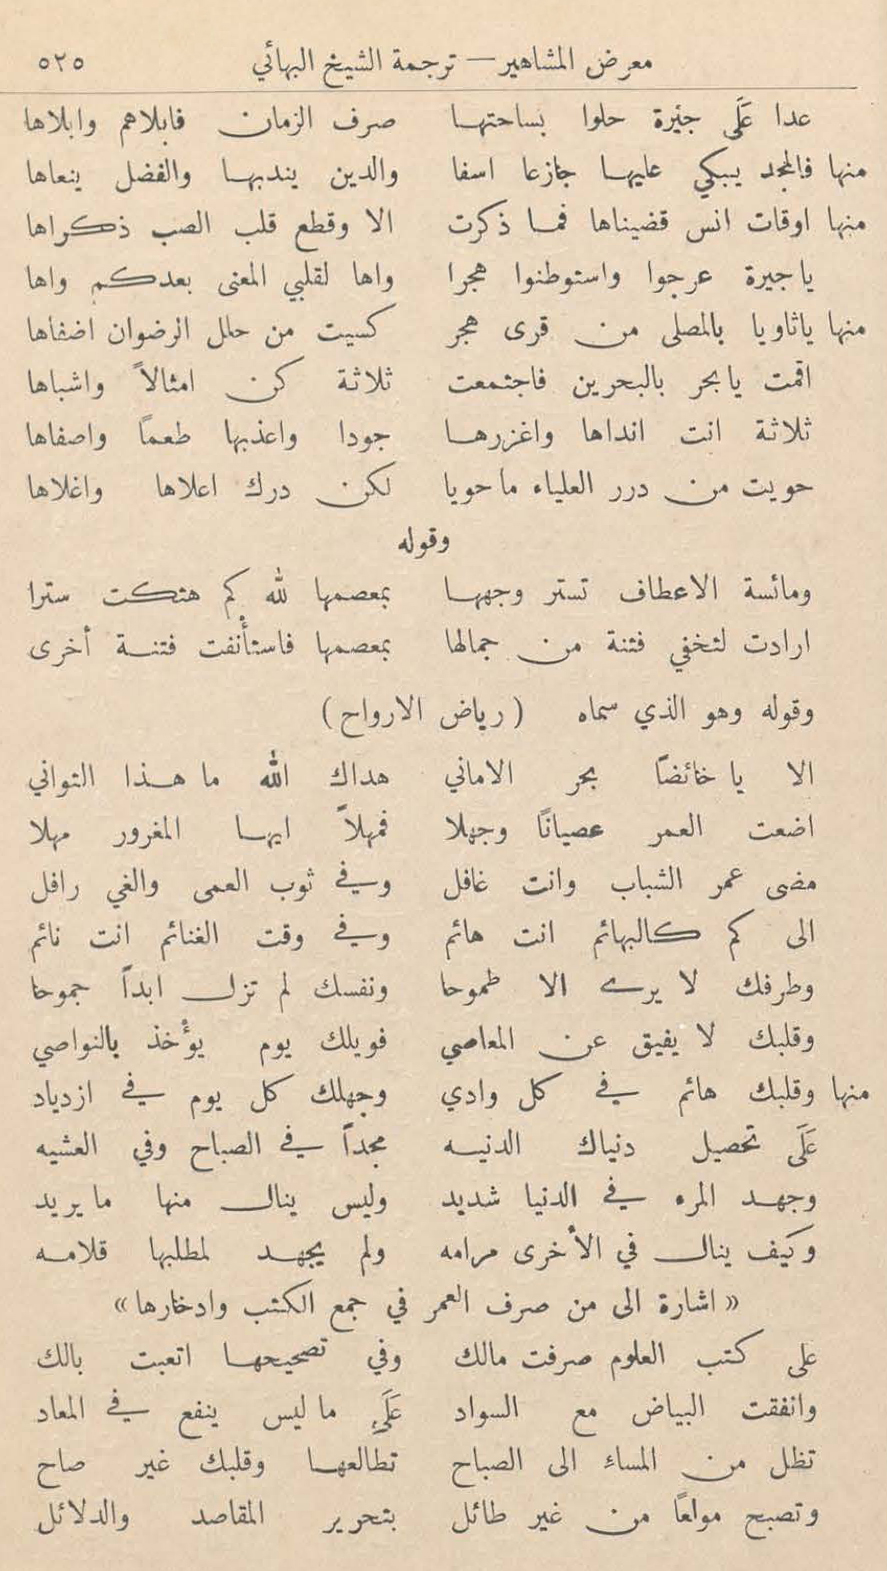 معرض المشاهير — ترجمة الشيخ البهائي ٥٢٥
عدا عَلَى جيْرة حلوا بساحتها صرف الزمان فابلاهم وابلاها
منها فالمجد يبكي عليها جازعا اسفا والدين يندبها والفضل ينعاها
منها اوقات انس قضيناها فما ذكرت الا وقطع قلب الصب ذكراها
ياجيرة عرجوا واستوطنوا هجرا واها لقلبي المعنى بعدكم واها
منها ياثاويا بالمصلى من قرى هجر كسيت من حلل الرضوان اضفاها
اقمت يابحر بالبحرين فاجتمعت ثلاثة كن امثالاً واشباها
ثلاثة انت انداها واغزرها جودا واعذبها طعماً واصفاها
حويت من درر العلياء ماحويا لكن درك اعلاها واغلاها
وقوله
ومائسة الاعطاف تستر وجهها بمعصمها لله كم هتكت سترا
ارادت لتخفي فتنة من جمالها بمعصمها فاستأنفت فتنة أخرى
وقوله وهو الذي سماه (رياض الارواح)
الا يا خائضاً بحر الاماني هداك الله ما هذا التواني
اضعت العمر عصياناً وجهلا فمهلاً ايها المغرور مهلا
مضى عمر الشباب وانت غافل وفي ثوب العمى والغي رافل
الى كم كالبهائم انت هائم وفي وقت الغنائم انت نائم
وطرفك لا يرى الا طموحا ونفسك لم تزل ابداً جموحا
وقلبك لا يفيق عن المعاصي فويلك يوم يؤْخذ بالنواصي
منها وقلبك هائم في كل وادي وجهلك كل يوم في ازدياد
عَلَى تحصيل دنياك الدنيه مجداً في الصباح وفي العشيه
وجهد المرء في الدنيا شديد وليس ينال منها مايريد
وكيف ينال في الأخرى مرامه ولم يجهد لمطلبها قلامه
«اشارة الى من صرف العمر في جمع الكتب وادخارها»
على كتب العلوم صرفت مالك وفي تصحيحها اتعبت بالك
وانفقت البياض مع السواد عَلَى ماليس ينفع في المعاد
تظل من المساءِ الى الصباح تطالعها وقلبك غير صاح
وتصبح مولعاً من غير طائل بتحرير المقاصد والدلائل